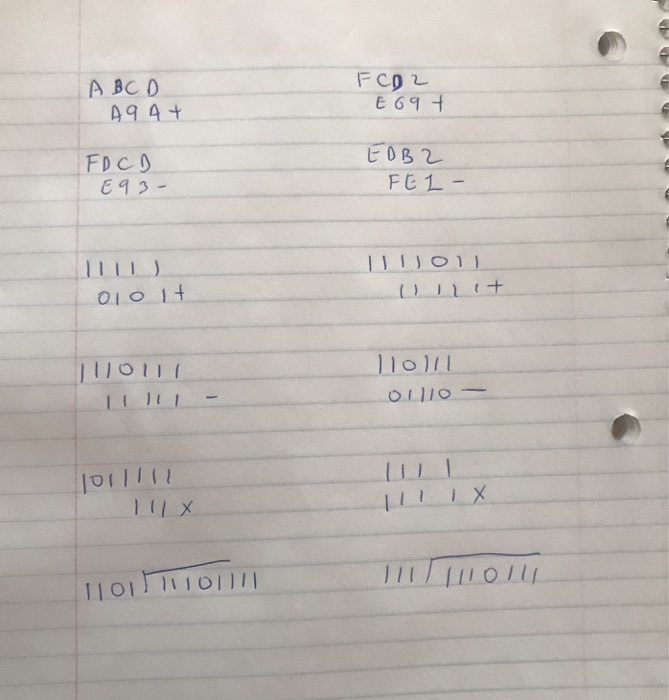 ABCD
A9A+
FCD2
E69+
FDCD
E93-
EDB2
FE1-
11111
0101+
1111011
11111+
1110111
11111-
110111
01110-
1011111
111x
1111
1111x
1101/11101111
111/1110111